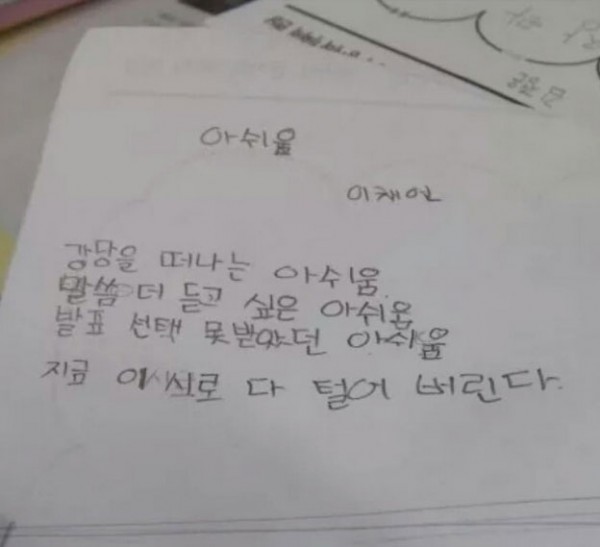 아쉬움
이채연
강당을 떠나는 아쉬움
말씀 더 듣고 싶은 아쉬움
발표 선택 못받았던 아쉬움
지금 이시로 다 털어 버린다.